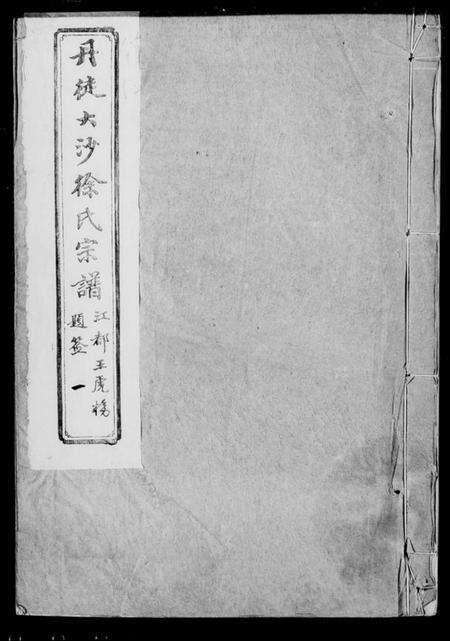 丹徒大沙徐氏宗譜
江都王虎榜
題簽
一